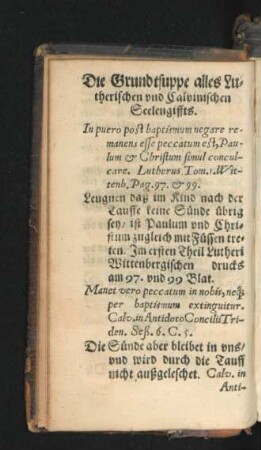 Die Grundtsuppe alles Lu-
therischen vnd Calvinischen
Seelengiffts.
In puero post baptismum negare re-
manens esse peccatum est, Pau-
lum & Christum simul concul-
care. Lutherus Tom. 1. Wit-
tenb. Pag. 97. & 99.
Leugnen daß im Kind nach der
Tauffe keine Sünde übrig
sey/ ist Paulum vnd Chri-
stum zugleich mit Füssen tre-
ten. Im ersten Theil Lutheri
Wittenbergischen drucks
am 97. vnd 99 Blat.
Manet vero peccatum in nobis, neq;
per baptismum extinguitur.
Calv. in Antidoto Concilii Tri-
den. Seß. 6. C. 5.
Die Sünde aber bleibet in vns/
vnd wird durch die Tauff
nicht außgeleschet. Calv. in
Anti-